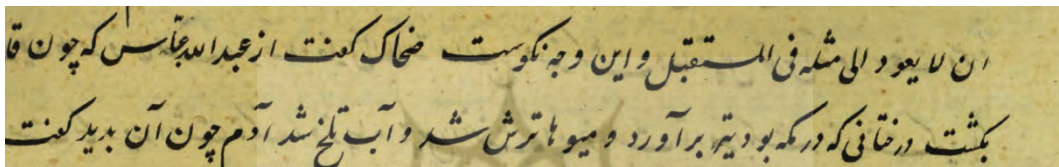 ان لا یعود الی مثله فی المستقبل و این وجه نکوست ضحاک کفت از عبدالله عباس که چون قا
بکشت درختانی که در مکه بود تیره برآورد و میوها ترش شد و آب تلخ شد آدم چون آن بدید کفت